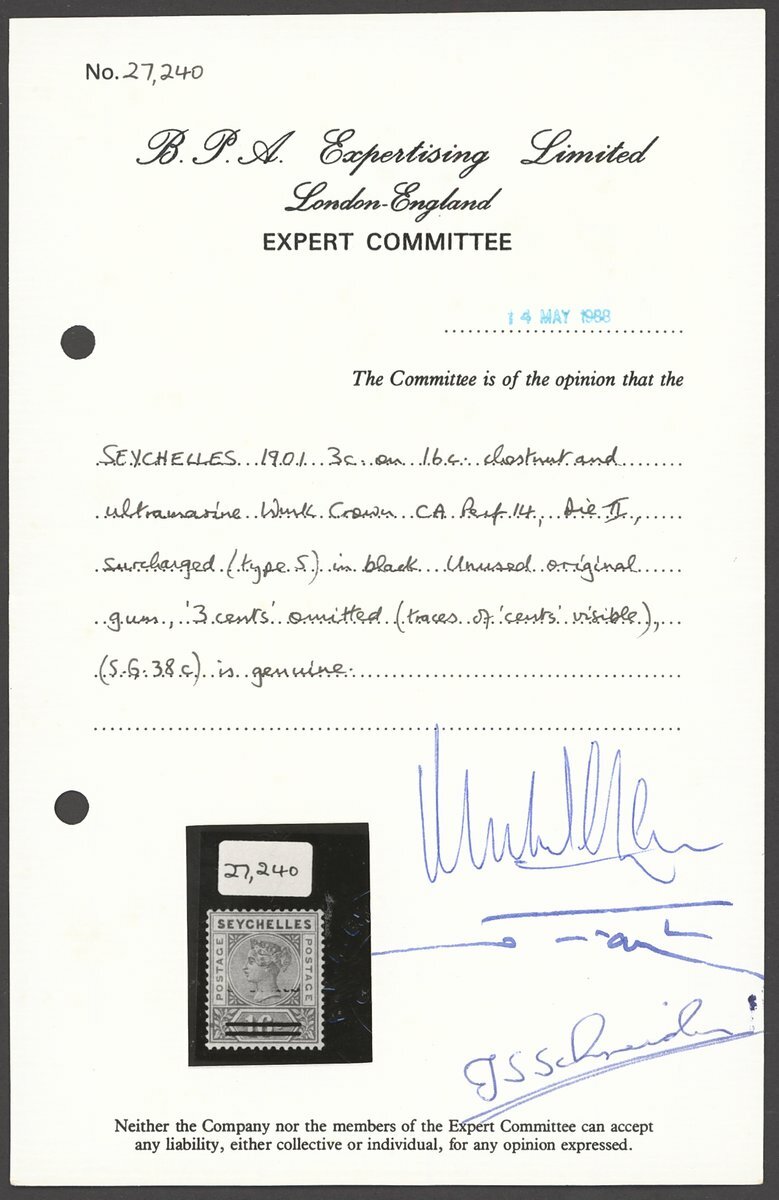 No. 27,240
B. P. A. Expertising Limited
London-England
EXPERT COMMITTEE
14 MAY 1988
The Committee is of the opinion that the
SEYCHELLES 1901 3c. on 16c. chestnut and
ultramarine Wmk Crown CA Perf 14, Die II,
surcharged (type 5) in black Unused original
gum, '3 cents' omitted (traces of 'cents' visible),
(S.G. 38c) is genuine.
27,240
SEYCHELLES
POSTAGE
POSTAGE
16
JSSchneider
Neither the Company nor the members of the Expert Committee can accept
any liability, either collective or individual, for any opinion expressed.